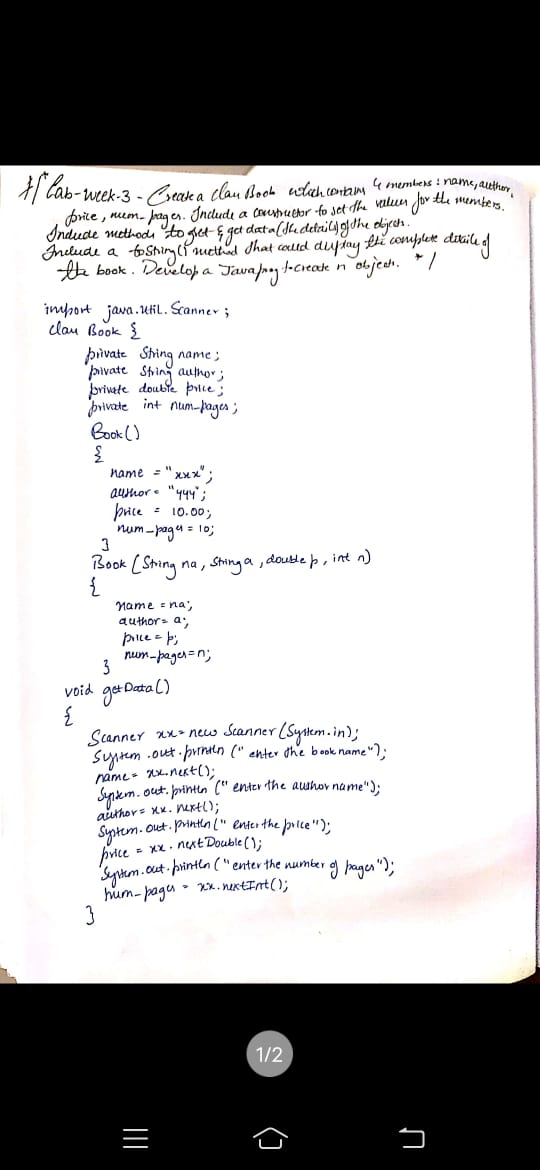 /* Lab-week-3 - Create a class Book which contains 4 members : name, author,
price, num-pages. Include a constructor to set the values for the members.
Include methods to set & get data (the details) of the objects.
Include a toString() method that could display the complete details of
the book. Develop a Java prog to create n objects. */
import java.util.Scanner;
class Book {
private String name;
private String author;
private double price;
private int num_pages;
Book()
{
name = "xxx";
author = "yyy";
price = 10.00;
num_pages = 10;
}
Book (String na, String a, double p, int n)
{
name = na;
author = a;
price = p;
num_pages = n;
}
void getData()
{
Scanner xx = new Scanner (System.in);
System.out.println (" enter the book name");
name = xx.next();
System.out.println (" enter the author name");
author = xx.next();
System.out.println (" enter the price");
price = xx.nextDouble();
System.out.println ("enter the number of pages");
num-pages = xx.nextInt();
}
1/2